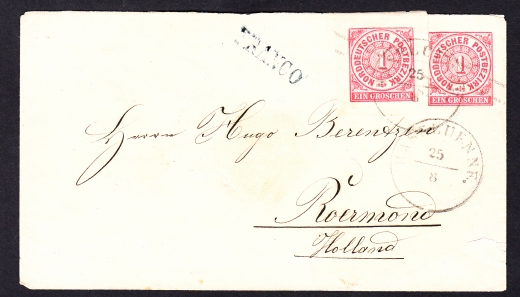 FRANCO
NORDDEUTSCHER POSTBEZIRK
1
EIN GROSCHEN
NORDDEUTSCHER POSTBEZIRK
1
EIN GROSCHEN
25
25
8
Herrn Hugo Berentzen
Roermond
Holland